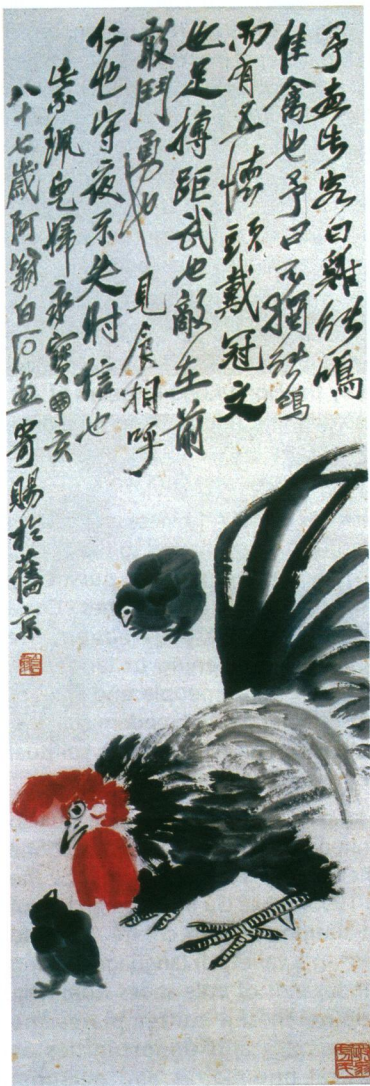 予畫此客曰雞能鳴
佳禽也予曰不獨能鳴
而有五德頭戴冠文
也足搏距武也敵在前
敢鬥勇也見食相呼
仁也守夜不失時信也
紫珮兒婦永寶亥
八十七歲阿翁白石畫寄賜於舊京